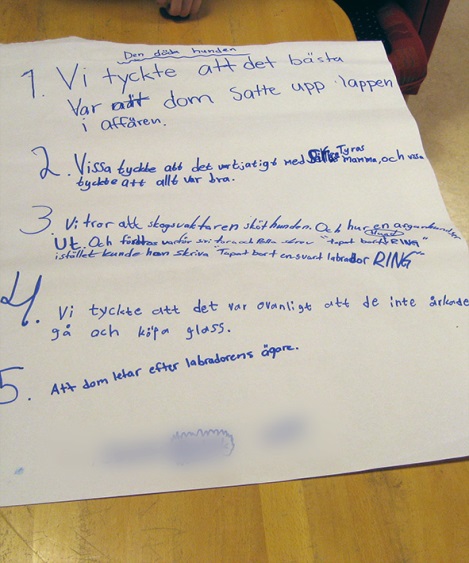 Den döda hunden
1. Vi tyckte att det bästa
Var att dom Satte upp lappen
i affären.
2. Vissa tyckte att det var tjatigt med Tyras mamma, och vissa
tyckte att allt var bra.
3. Vi tror att skogsvaktaren sköt hunden. Och hur en arg
Ut. Och varför "tapat bort RING"
istället kunde hon skriva "Tapat bort en svart labrador RING"
4. Vi tyckte att det var ovanligt att de inte årkade
gå och köpa glass.
5. Att dom letar efter labradorens ägare.